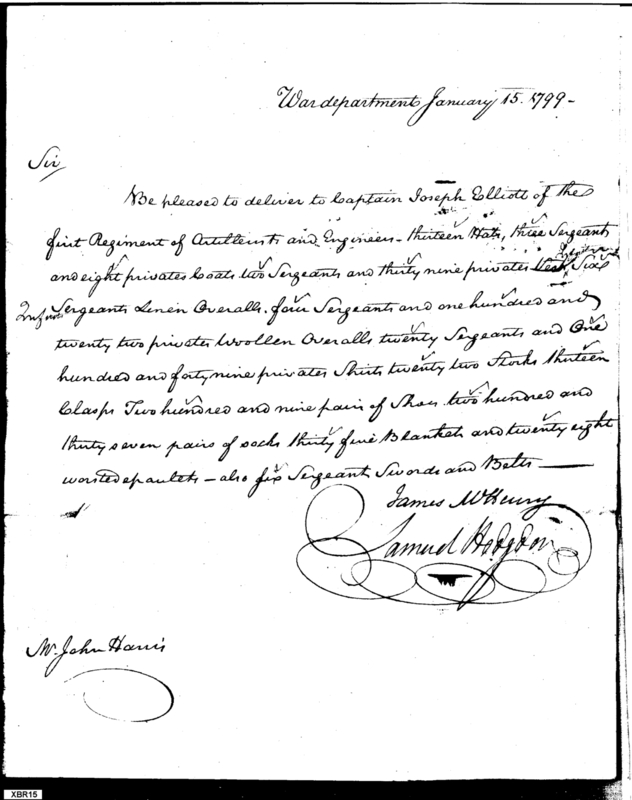 War department January 15. 1799 -
Sir
Be pleased to deliver to Captain Joseph Elliott of the
first Regiment of Artillerists and Engineers - thirteen Hats, three Sergeants
and eight privates Coats two Sergeants and thirty nine privates Vests Six
Sergeants Linen Overalls. four Sergeants and one hundred and
twenty two privates Woollen Overalls twenty Sergeants and One
hundred and forty nine privates Shirts twenty two Stocks thirteen
Clasps Two hundred and nine pairs of Shoes two hundred and
thirty seven pairs of socks thirty five Blankets and twenty eight
worsted epaulets - also six Sergeant Swords and Belts
James McHenry
Samuel Hodgdon
Mr. John Harris
XBR15